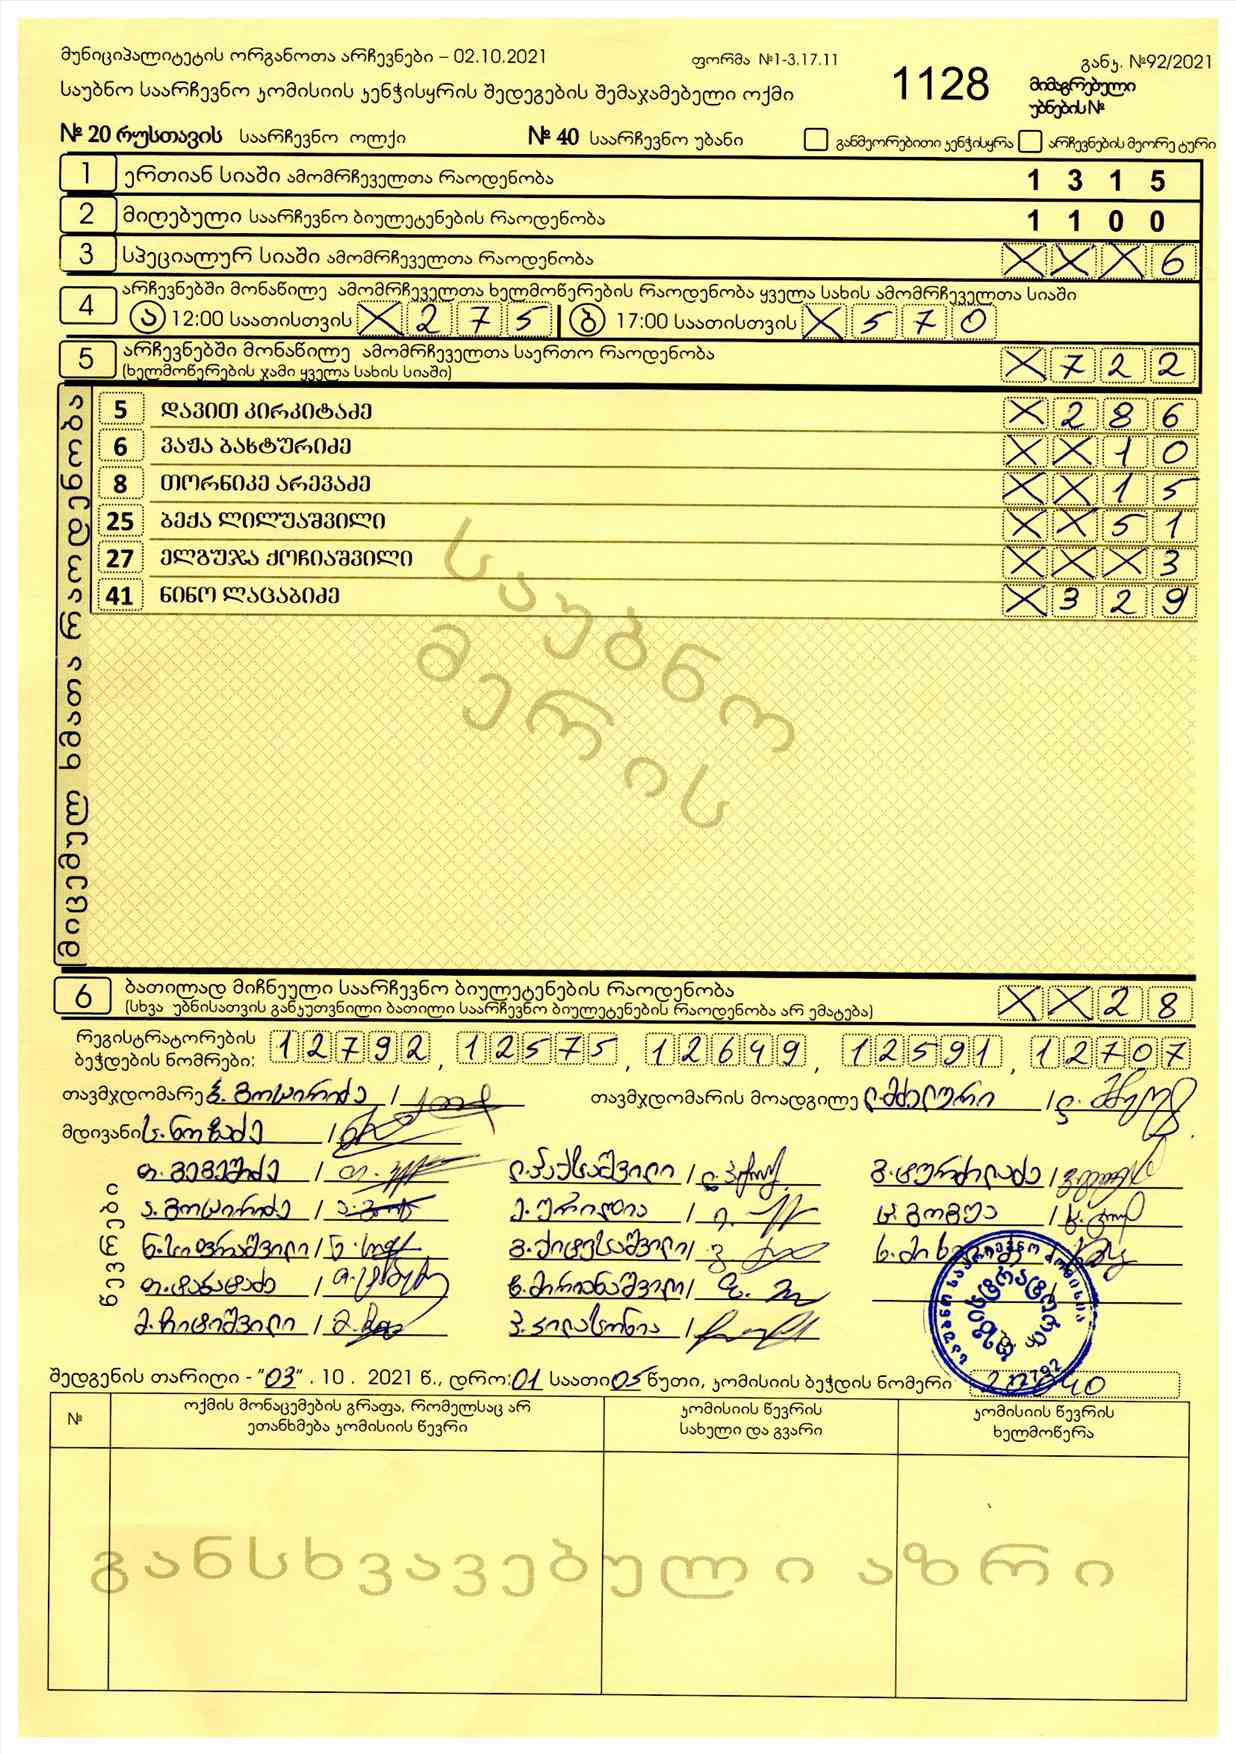 მუნიციპალიტეტის ორგანოთა არჩევნები – 02.10.2021 ფორმა №1-3.17.11 განკ. №92/2021
საუბნო საარჩევნო კომისიის კენჭისყრის შედეგების შემაჯამებელი ოქმი 1128 მიმაგრებული უბნების №
№ 20 რუსთავის საარჩევნო ოლქი № 40 საარჩევნო უბანი განმეორებითი კენჭისყრა არჩევნების მეორე ტური
1 ერთიან სიაში ამომრჩეველთა რაოდენობა 1 3 1 5
2 მიღებული საარჩევნო ბიულეტენების რაოდენობა 1 1 0 0
3 სპეციალურ სიაში ამომრჩეველთა რაოდენობა X X X 6
4 არჩევნებში მონაწილე ამომრჩეველთა ხელმოწერების რაოდენობა ყველა სახის ამომრჩეველთა სიაში
ა 12:00 საათისთვის X 2 7 5 ბ 17:00 საათისთვის X 5 7 0
5 არჩევნებში მონაწილე ამომრჩეველთა საერთო რაოდენობა X 7 2 2
(ხელმოწერების ჯამი ყველა სახის სიაში)
მიცემულ ხმათა რაოდენობა
5 დავით კირკიტაძე X 2 8 6
6 ვაჟა ბახტურიძე X X 1 0
8 თორნიკე არევაძე X X 1 5
25 ბექა ლილუაშვილი X X 5 1
27 ელგუჯა ქოჩიაშვილი X X X 3
41 ნინო ლაცაბიძე X 3 2 9
საუბნო
მერის
6 ბათილად მიჩნეული საარჩევნო ბიულეტენების რაოდენობა X X 2 8
(სხვა უბნისათვის განკუთვნილი ბათილი საარჩევნო ბიულეტენების რაოდენობა არ ემატება)
რეგისტრატორების
ბეჭდების ნომრები: 12792, 12575, 12649, 12591, 12707
თავმჯდომარე გოცირიძე / თავმჯდომარის მოადგილე /
მდივანი ს. ნოზაძე /
წევრები
თ. გეგეშიძე / /
ა. გოცირიძე / ე. ურიდია / გ. გოგუა /
/ /
/ ნ. მირიანაშვილი /
მ. ჩიტიშვილი / /
შედგენის თარიღი - "03" . 10 . 2021 წ., დრო: 01 საათი 05 წუთი, კომისიის ბეჭდის ნომერი
№ ოქმის მონაცემების გრაფა, რომელსაც არ ეთანხმება კომისიის წევრი კომისიის წევრის სახელი და გვარი კომისიის წევრის ხელმოწერა
განსხვავებული აზრი